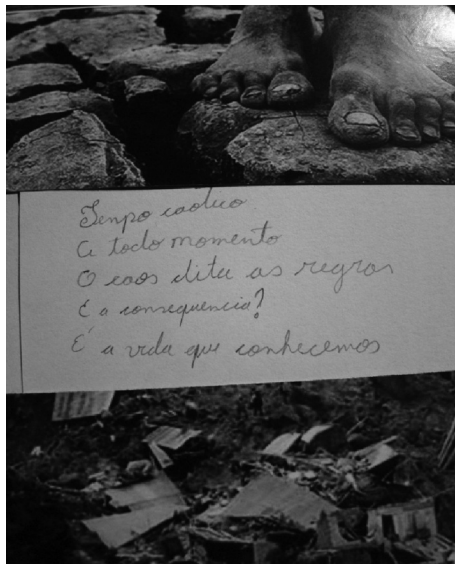 Tempo caotico
A todo momento
O caos dita as regras
E a consequencia?
É a vida que conhecemos